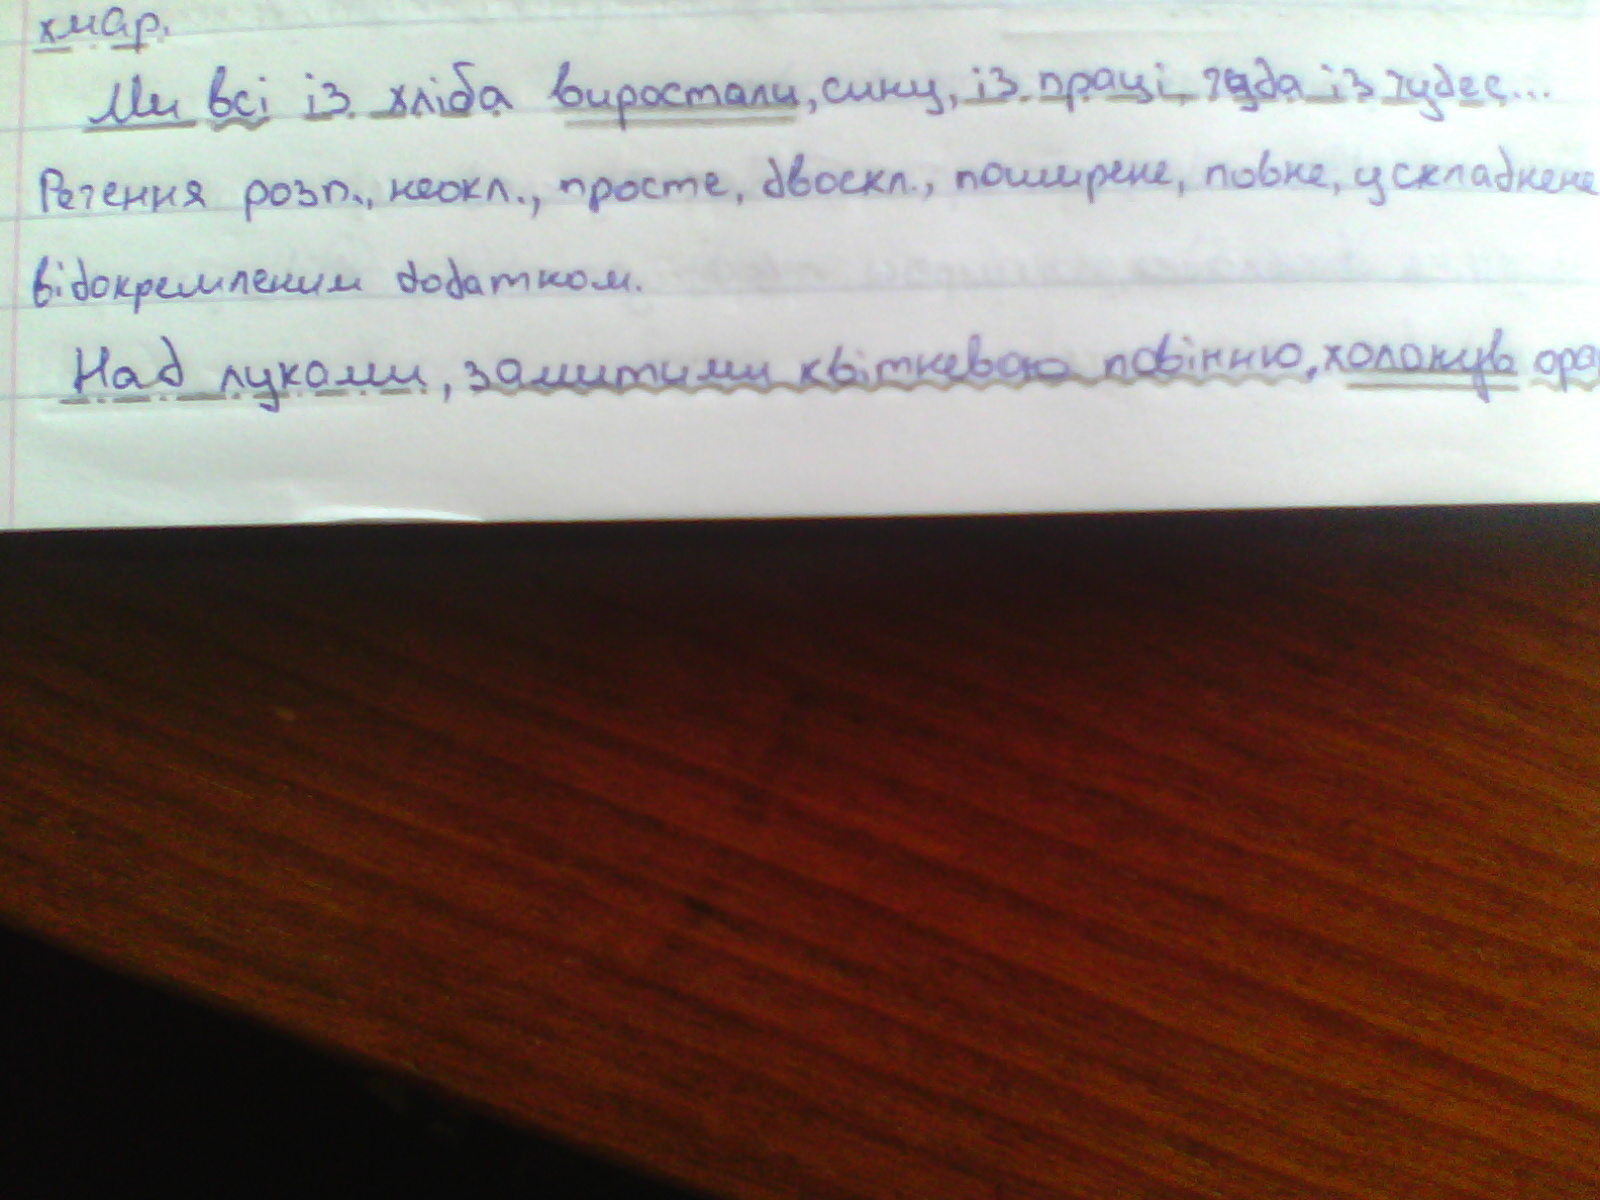 хмар.
Ми всі із хліба виростали, сину, із праці, та із чудес...
Речення розп., неокл., просте, двоскл., поширене, повне, ускладнене
відокремленим додатком.
Над луками, залитими квітневою повінню, холонув